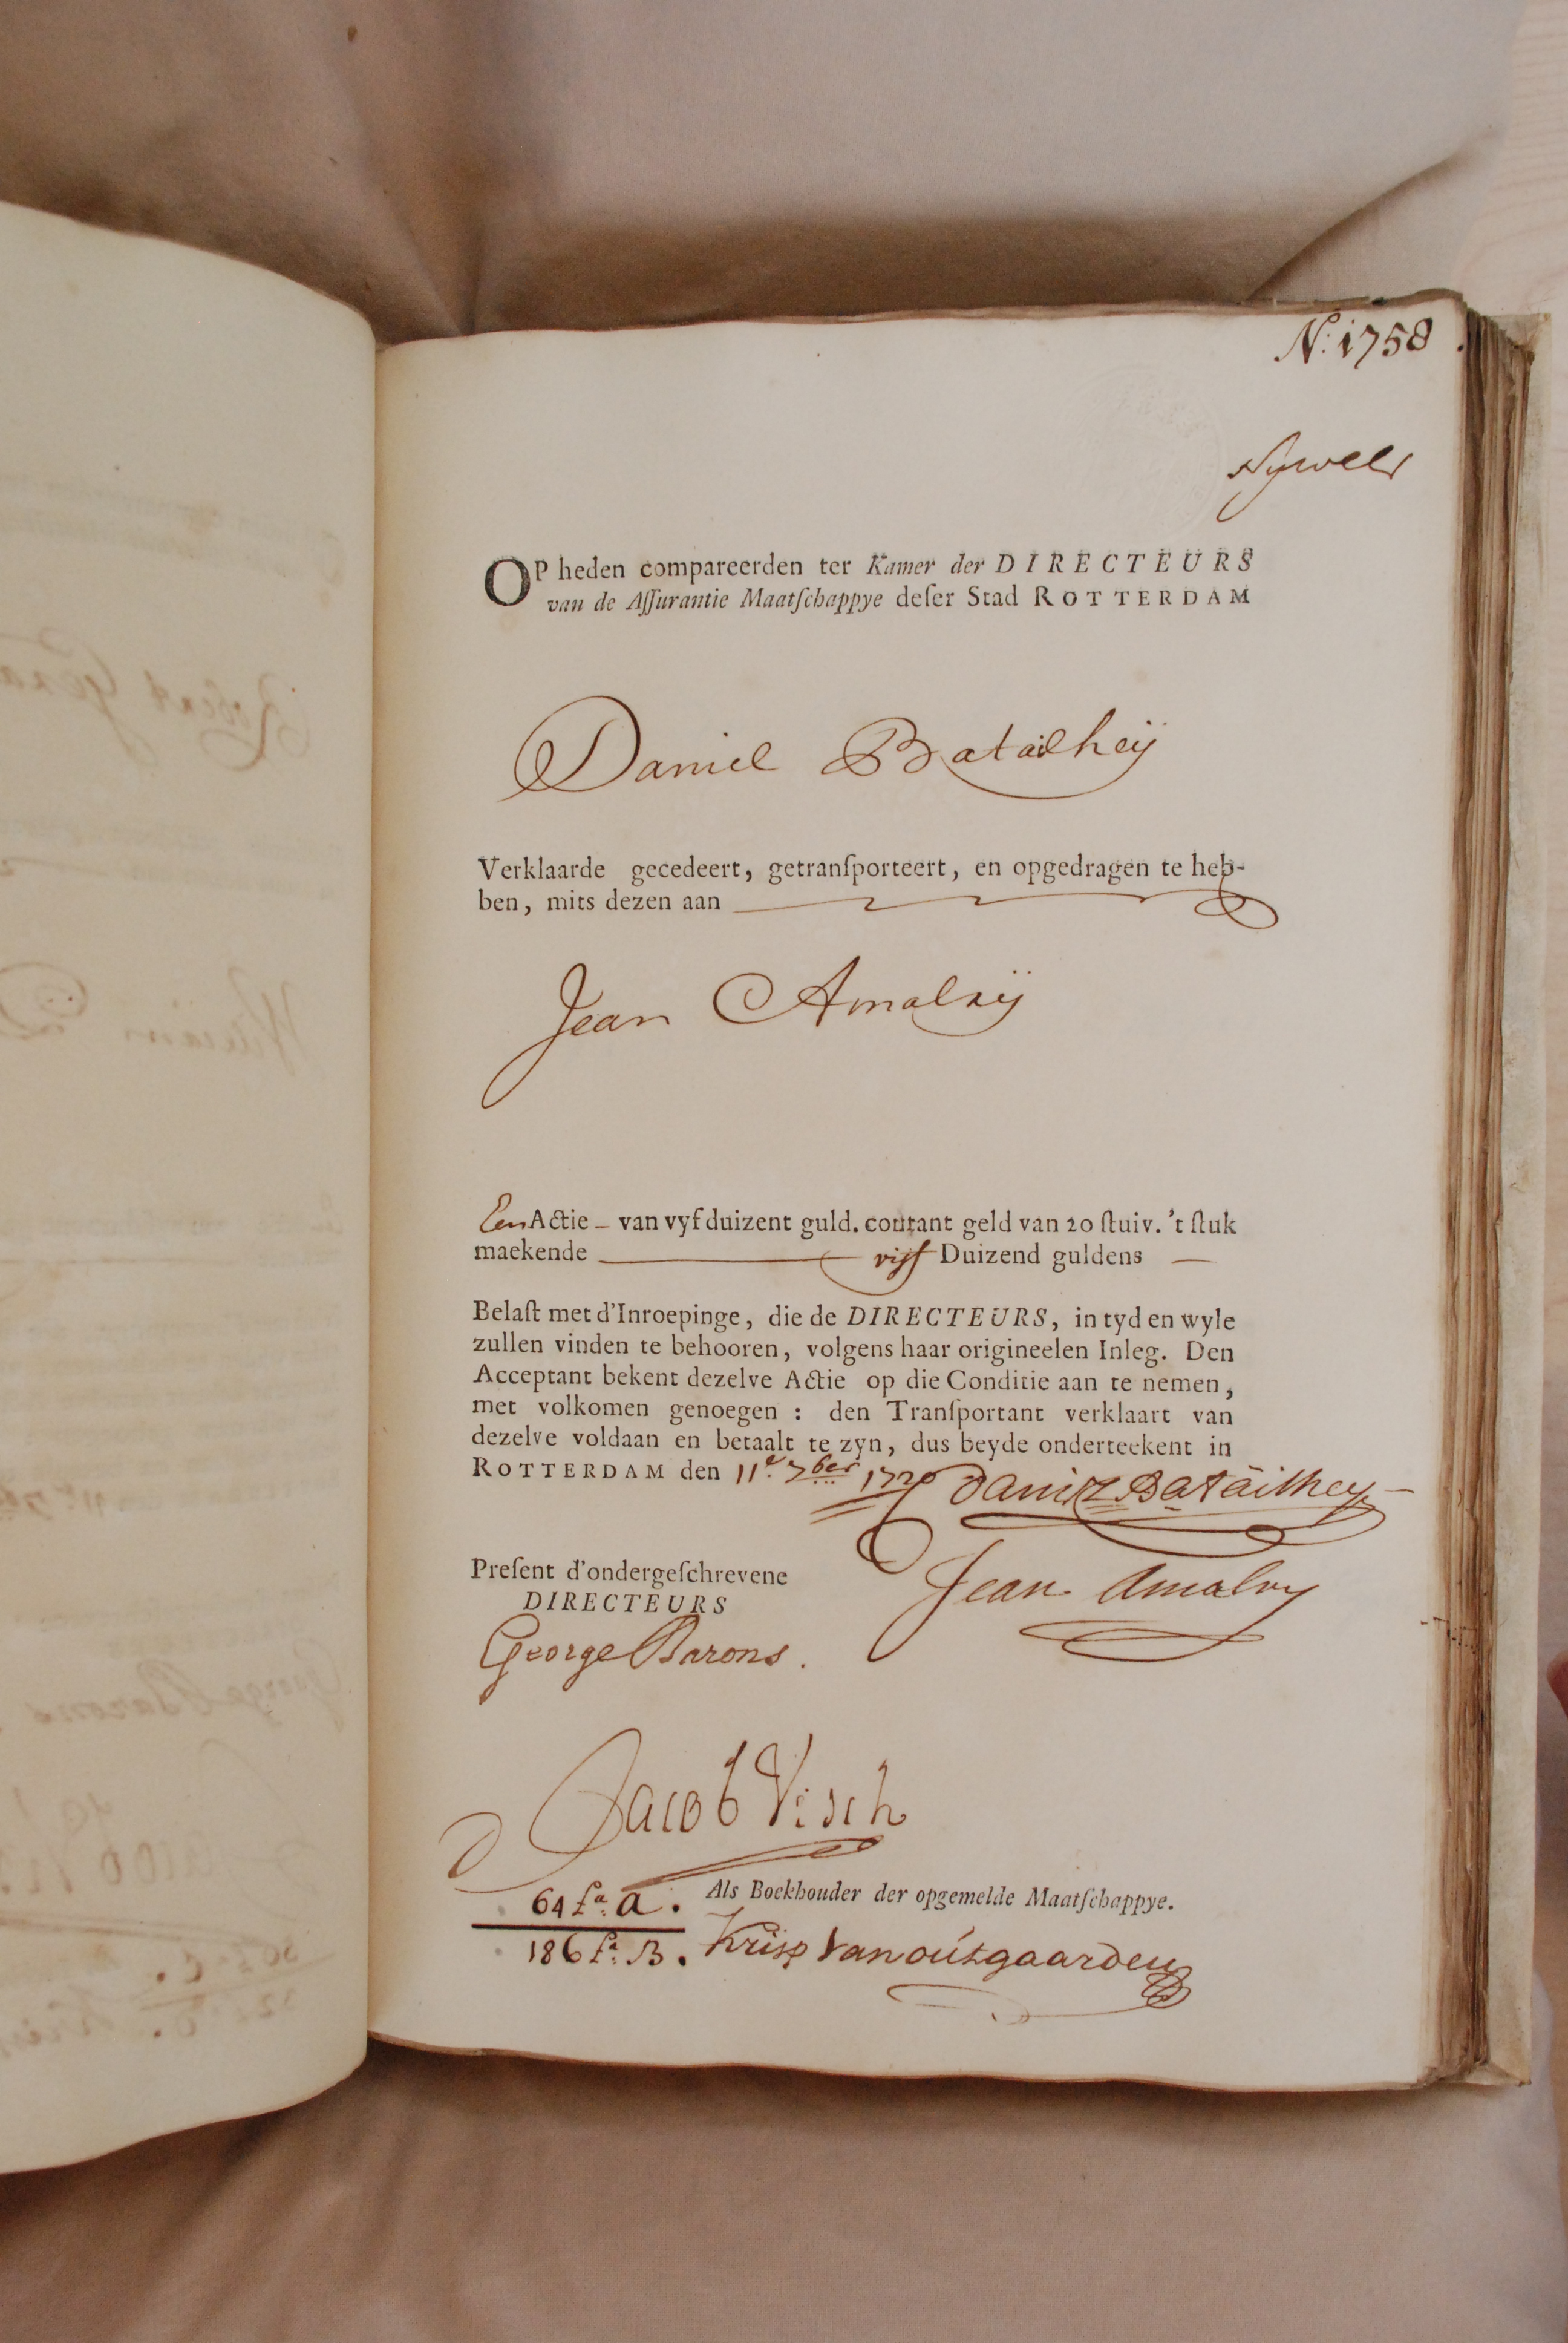 N.º 1758
OP heden compareerden ter Kamer der DIRECTEURS
van de Aſſurantie Maatſchappye deſer Stad ROTTERDAM
Daniel Batailheij
Verklaarde gecedeert, getranſporteert, en opgedragen te heb-
ben, mits dezen aan
Jean Amalvij
Een Actie – van vyf duizent guld. contant geld van 20 ſtuiv. 't ſtuk
maekende vijf Duizend guldens
Belaſt met d'Inroepinge, die de DIRECTEURS, in tyd en wyle
zullen vinden te behooren, volgens haar origineelen Inleg. Den
Acceptant bekent dezelve Actie op die Conditie aan te nemen,
met volkomen genoegen : den Tranſportant verklaart van
dezelve voldaan en betaalt te zyn, dus beyde onderteekent in
ROTTERDAM den 11e 7ber 1720 Daniel Batailhey
Preſent d'ondergeſchrevene
DIRECTEURS
Jean Amalvy
George Barons.
Jacob Visch
64 fa: A. Als Boekhouder der opgemelde Maatſchappye.
186 fa: B. Krisp Vanoutgaarden